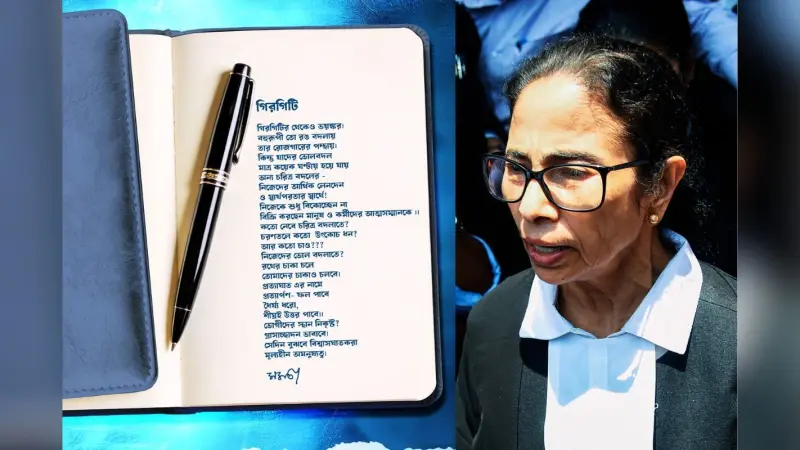 গিরগিটি
গিরগিটির থেকেও ভয়ঙ্কর।
বহুরূপী তো রঙ বদলায়
তার রোজগারের পন্থায়।
কিন্তু যাদের ভোলবদল
মাত্র কয়েক ঘণ্টায় হয়ে যায়
অন্য চরিত্র বদলের -
নিজেদের আর্থিক লেনদেন
ও স্বার্থপরতার স্বার্থে!
নিজেকে শুধু বিকোচ্ছেন না
বিক্রি করছেন মানুষ ও কর্মীদের আত্মসম্মানকে।।
কতো নেবে চরিত্র বদলাতে?
চরণতলে কতো উৎকোচ ধন?
আর কতো চাও???
নিজেদের ভোল বদলাতে?
রথের চাকা চলে
তোমাদের চাকাও চলবে।
প্রত্যাঘাত এর নামে
প্রত্যার্পণ- ফল পাবে
ধৈর্য্য ধরো,
শীঘ্রই উত্তর পাবে।।
ভোগীদের স্থান নিকৃষ্ট?
গ্রাসাচ্ছাদন ভাবাবে।
সেদিন বুঝবে বিশ্বাসঘাতকরা
মূল্যহীন অমনুষ্যত্ব।